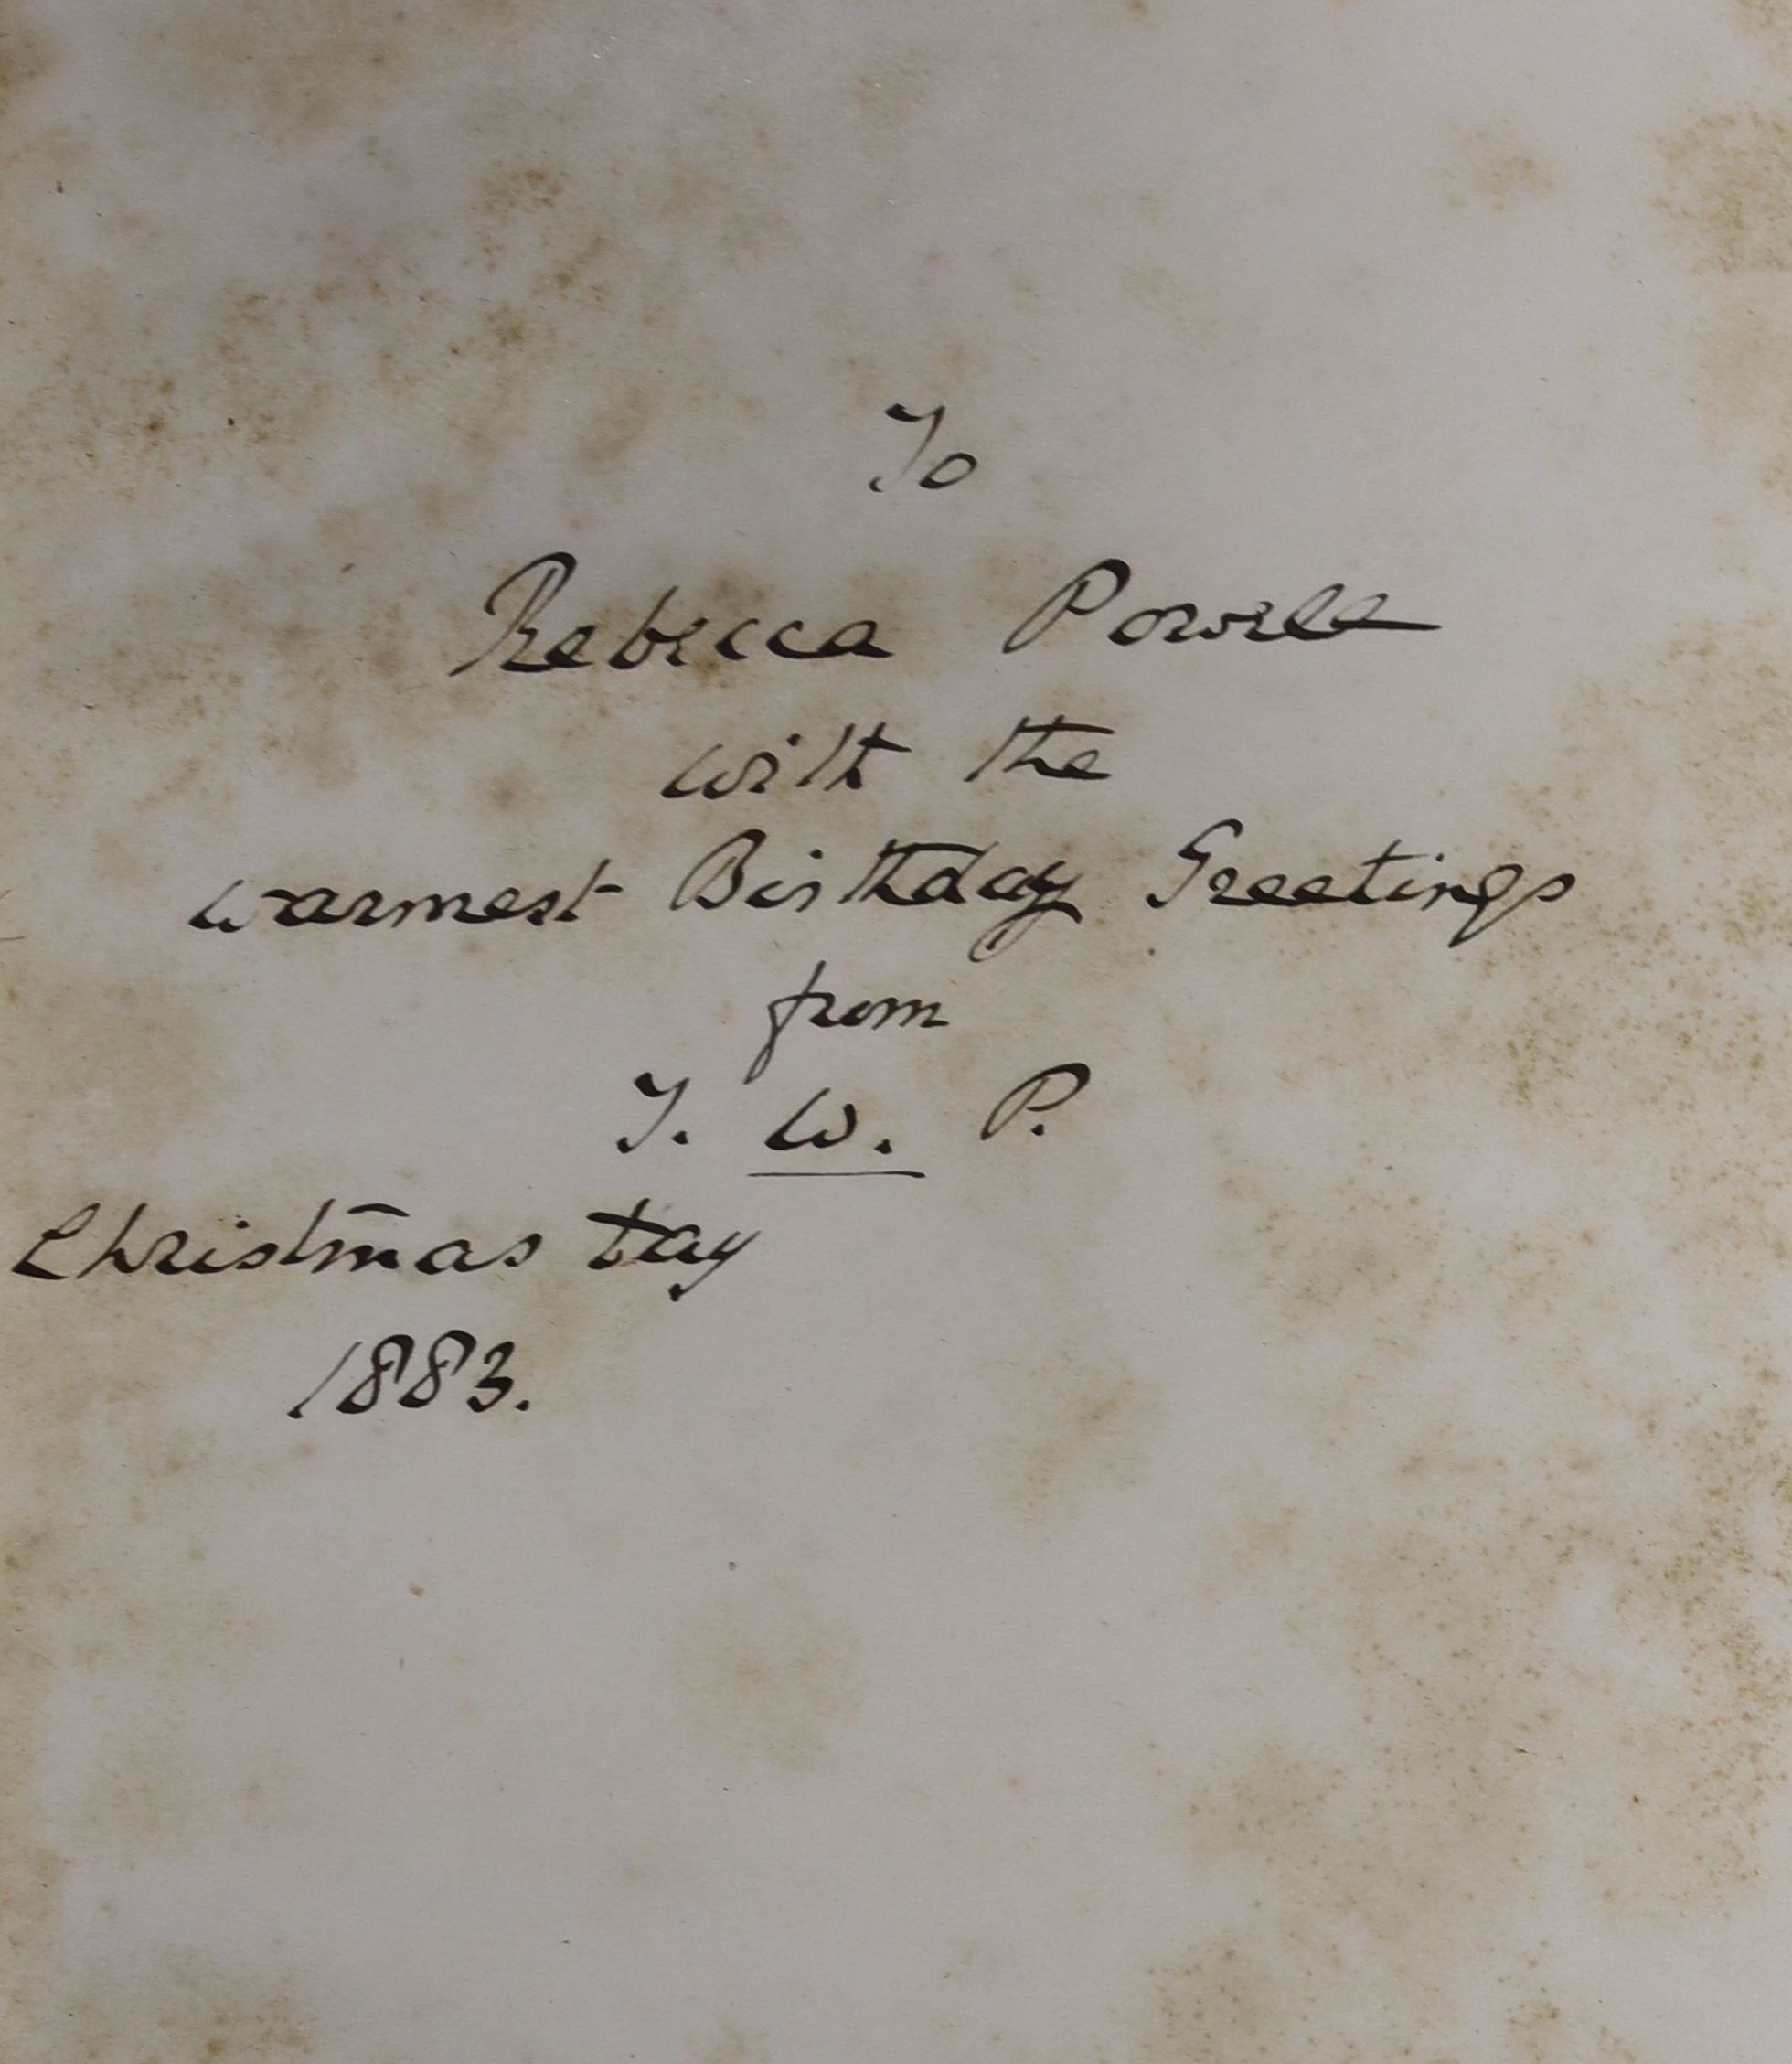 To
Rebecca Powell
with the
warmest Birthday Greetings
from
T. W. P.
Christmas Day
1883.